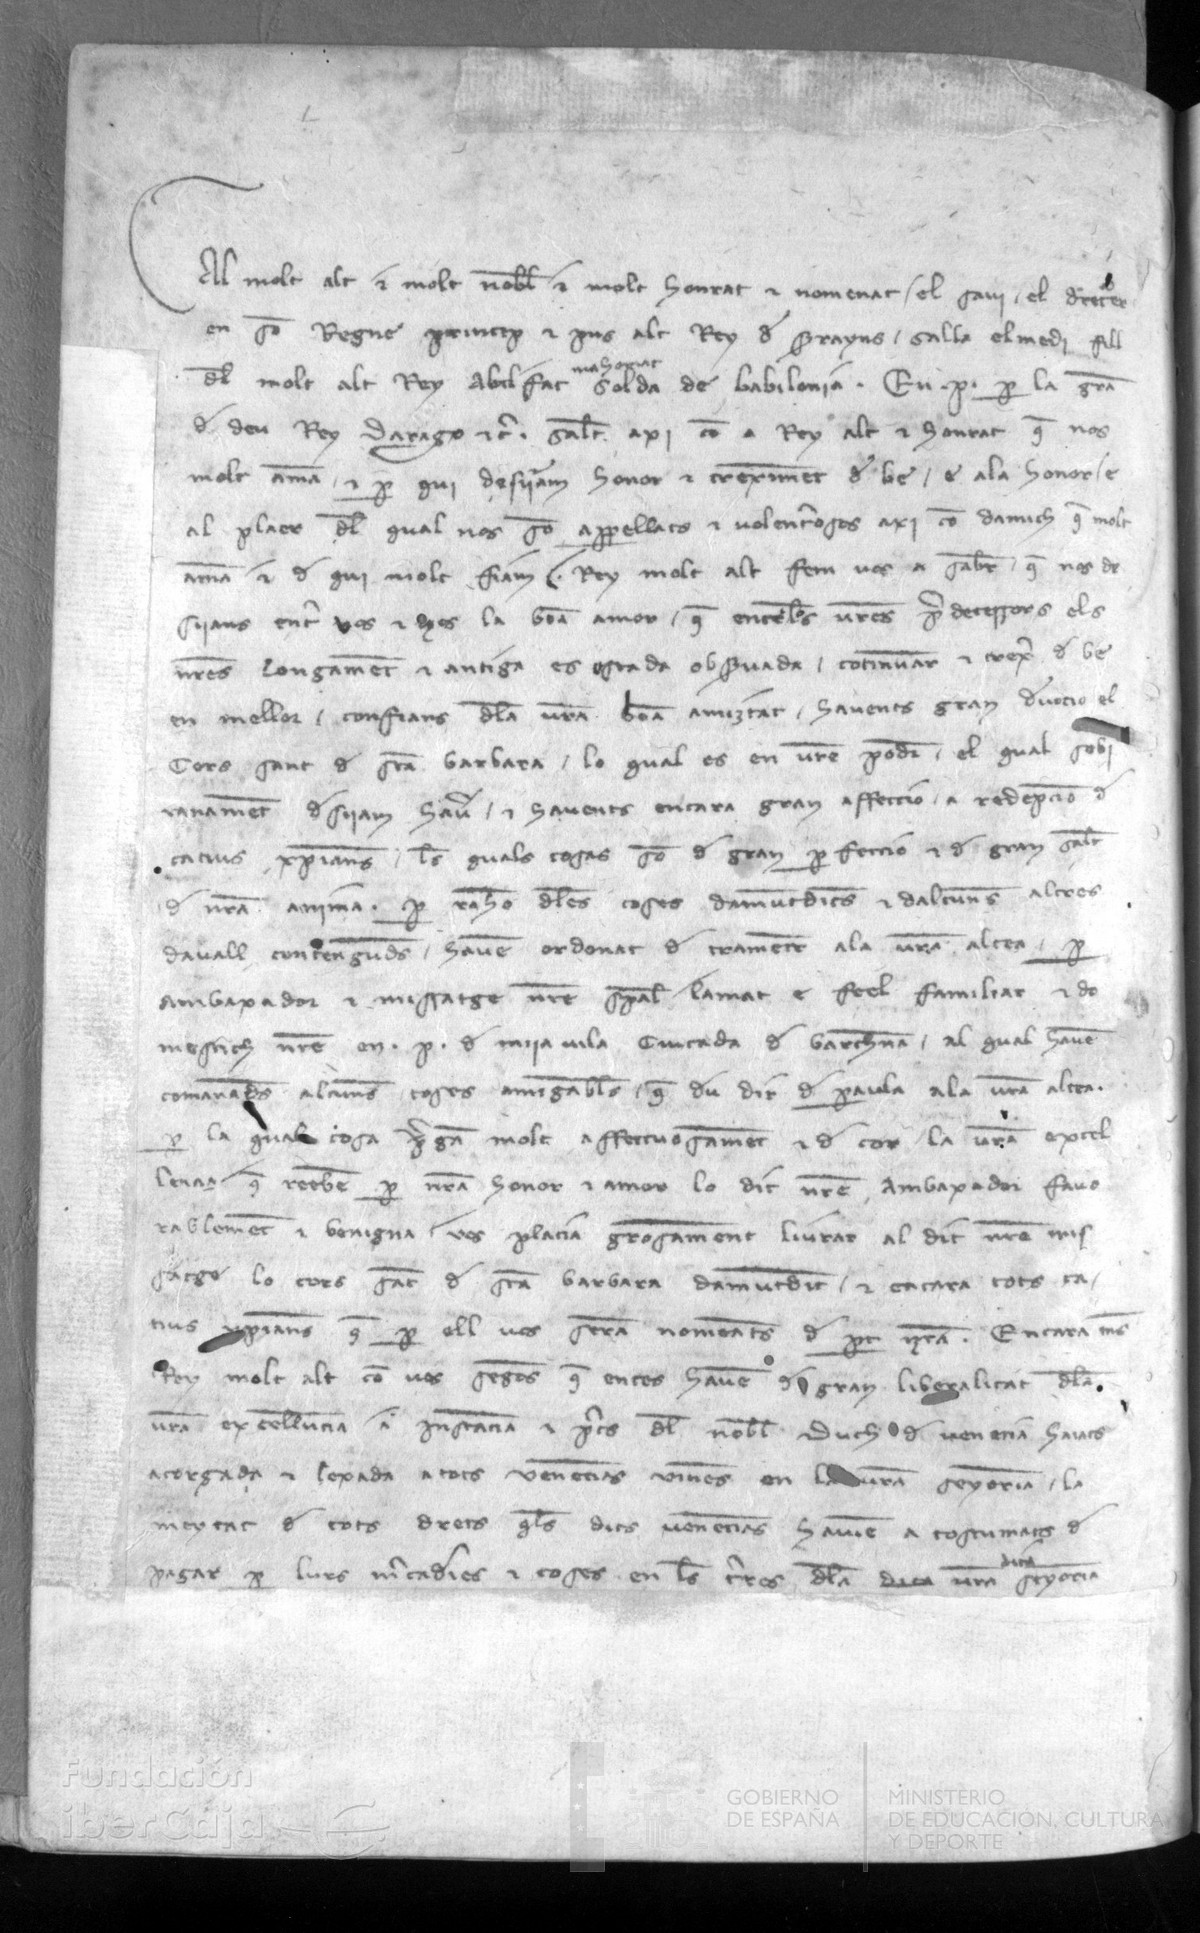 Al molt alt ⁊ molt nobl ⁊ molt honrat ⁊ nomenat / el savi / el dreturer
en so Regne princep ⁊ pus alt Rey d Srayns / Salla elmedi fill
dl molt alt Rey Abdilfac mahomat Solda de babilonia . En .p. p la gra
d deu Rey Darago ⁊c̄. salt. axi co a Rey alt ⁊ honrat q nos
molt ama / ⁊ p qui desijam honor ⁊ creximet d be / e ala honor / e
al plaer dl qual nos so appellats ⁊ volenteroses axi co damich q molt
ama ⁊ d qui molt fiam . Rey molt alt fem vos a saber / q nos de
sijans entr vos ⁊ nos la bona amor / q entrels vres predecessors els
nres longamet ⁊ antiga es estada observada / cotinuar ⁊ crexer d be
en mellor / confians dla vra bona amiztat / havents gran devocio el
Cors sant d sta barbara / lo qual es en vre poder / el qual sobi
ranamet desijam haver / ⁊ havents encara gran affeccio a redempcio d
catius xpians / les quals coses so d gran perfeccio ⁊ d gran salut
d nra anima . p raho dles coses damutdits ⁊ dalcuns altres
davall contenguds / have ordonat d trametre ala vra altea / p
Ambaxador ⁊ missatge nre special lamat e feel familiar ⁊ do
mestich nre en . p . d mijavila Ciutada d barchna / al qual have
comanads alcuns coses amigabls / q du dir d paula ala vra altea .
p la qual cosa pregam molt affectuosamet ⁊ d cor la vra excel
lencia q reebe p nra honor ⁊ amor lo dit nre Ambaxador favo
rablemet ⁊ benigna / ⁊us placia graciosament liurar al dit nre mis
satge lo cors sat d sta barbara damutdit / ⁊ encara tots ca
tius xpians q p ell vos sera nomeats d pt nra . Encara mes
Rey molt alt co vos segos q entes have d gran liberalitat dla
vra excellencia a instancia ⁊ prechs dl nobl Duch d venecia haiats
atorgada ⁊ lexada a tots venecias vinets en la vra senyoria / la
meytat d tots drets qls dits venecias havie a costumats d
pagar p lurs mercaderies ⁊ coses en ls terres dla vra dita senyoria
Fundación
iberCaja
GOBIERNO
DE ESPAÑA
MINISTERIO
DE EDUCACIÓN, CULTURA
Y DEPORTE